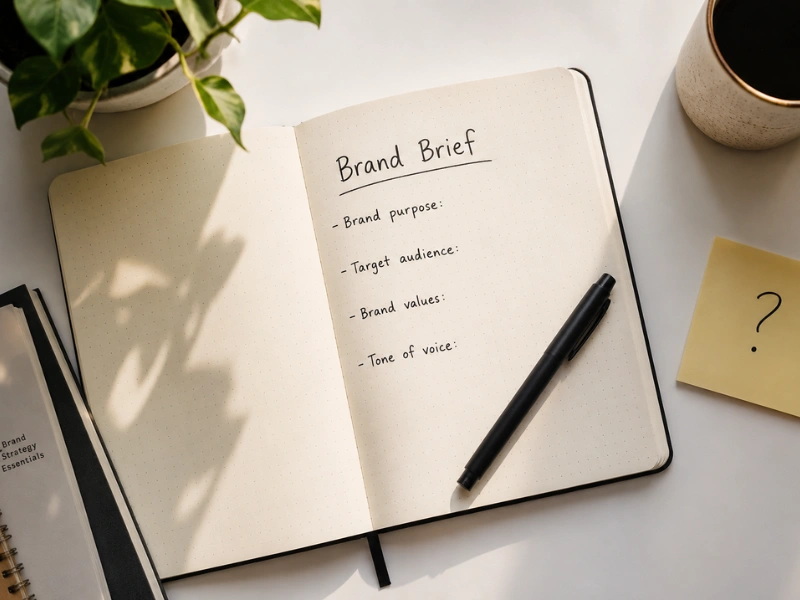 Brand Brief
- Brand purpose:
- Target audience:
- Brand values:
- Tone of voice:
?
Brand
Strategy
Essentials